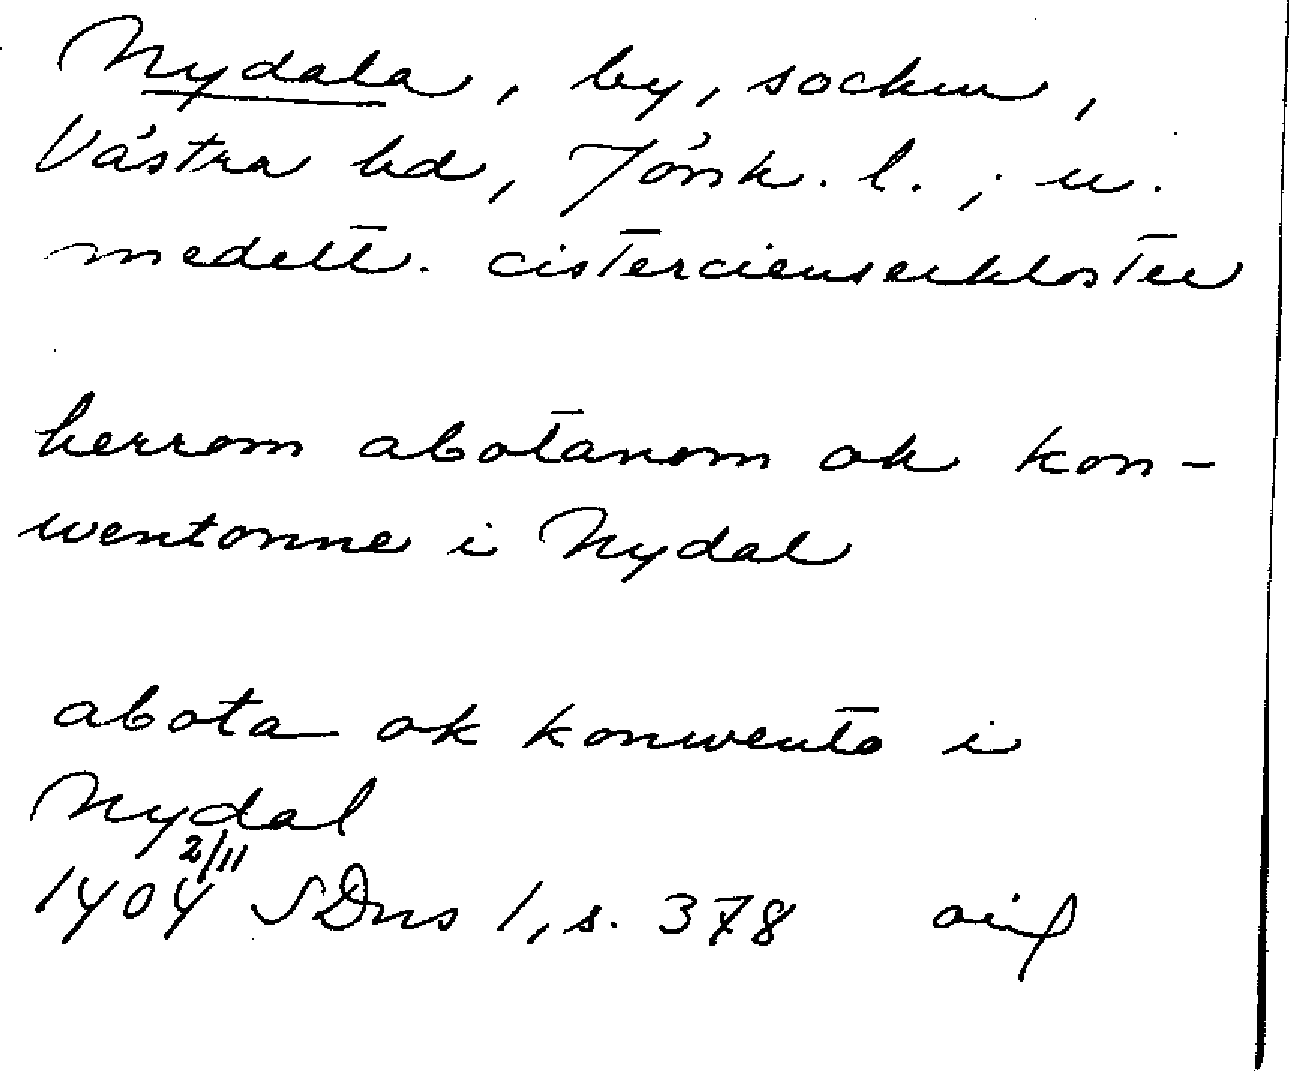 Nydala, by, socken,
Västra hd, Jönk. l.; u.
medelt. cistercienserkloster
herrom abotanom ok kon-
wentonne i Nydal
abota ok konwento i
Nydal
1404 2/11 SDns 1, s. 378